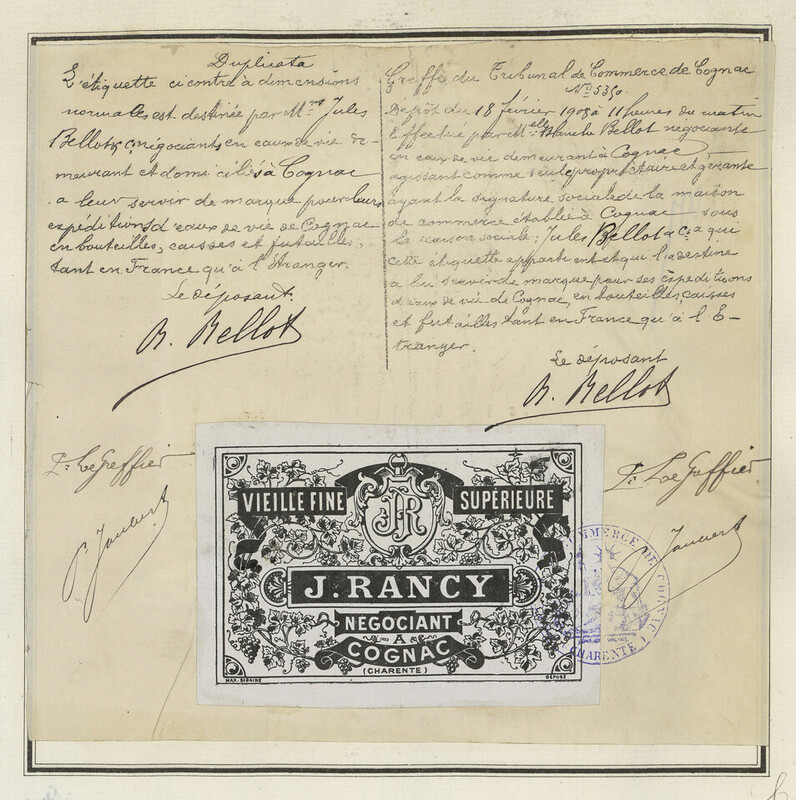 Duplicata
L'étiquette ci contre à dimensions
normales est destinée par Mrs Jules
Bellot & Co négociants en eaux de vie de-
meurant et domiciliés à Cognac
a leur servir de marque pour leurs
expéditions d'eaux de vie de Cognac
en bouteilles, caisses et futailles,
tant en France qu'à l'Etranger.
Le déposant.
B. Bellot
Greffe du Tribunal de Commerce de Cognac
No 5350
Dépôt du 18 février 1905 à 11 heures du matin
Effectué par Melle Blanche Bellot négociante
en eaux de vie demeurant à Cognac
agissant comme seule propriétaire et gérante
ayant la signature sociale de la maison
de commerce établie à Cognac sous
la raison sociale: Jules Bellot & Co a qui
cette étiquette appartient et qui la destine
a lui servir de marque pour ses Expéditions
d'eaux de vie de Cognac, en bouteilles, caisses
et futailles tant en France qu'à l'E-
tranger.
Le déposant
B. Bellot
P. Le Greffier
P. Le Greffier
VIEILLE FINE
JR
SUPÉRIEURE
J. RANCY
NÉGOCIANT
A
COGNAC
(CHARENTE)
DÉPOSÉ
COMMERCE DE COGNAC
CHARENTE